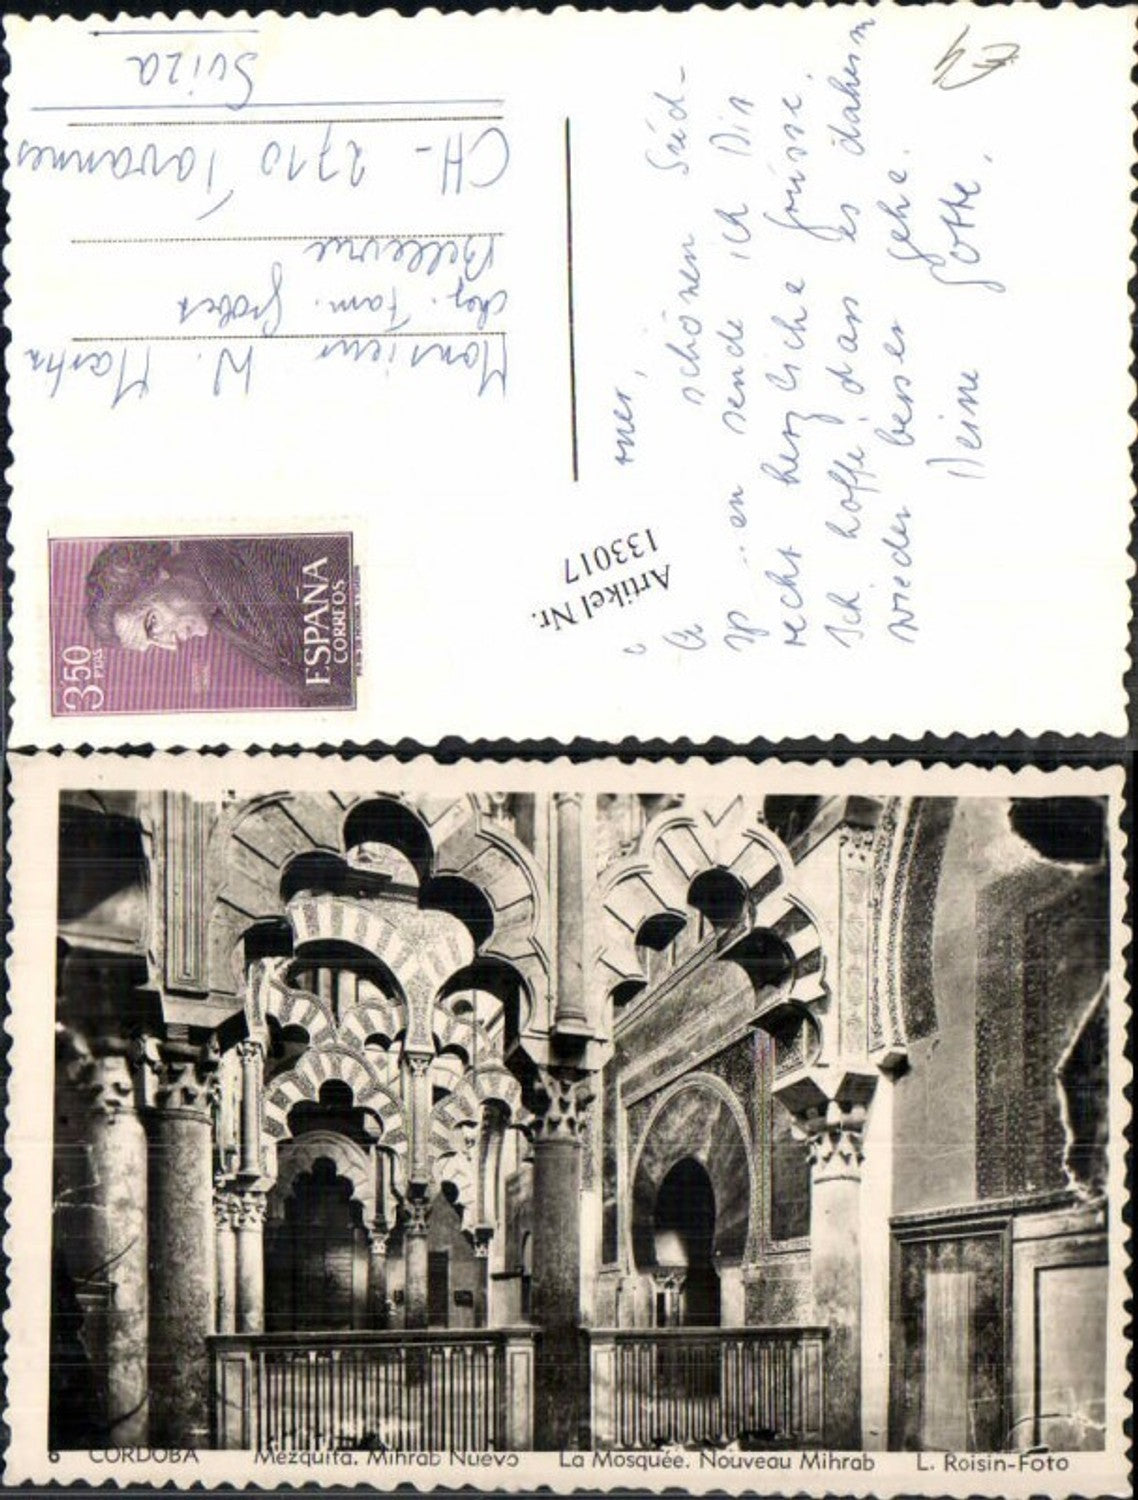 Suiza
CH-2710 Tavannes
Bellevue
chez. Fam.
Monsieur W.
ESPAÑA
CORREOS
3'50
PTAS
Artikel Nr.
133017
schönen Süd-
sende ich Dir
recht herzliche Grüsse.
Ich hoffe, dass es daheim
wieder besser gehe.
Deine Gotte.
6 CORDOBA Mezquita. Mihrab Nuevo La Mosquée. Nouveau Mihrab L. Roisin-Foto